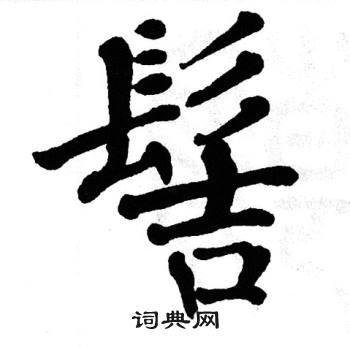 髻
词典网